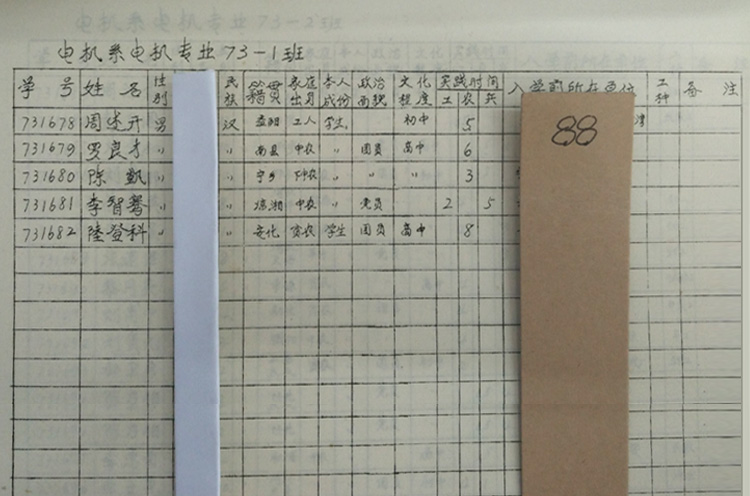 电机系电机专业73-1班
学号 姓名 性别 民族 籍贯 家庭出身 本人成份 政治面貌 文化程度 实践时间 工 农 兵 入学前所在单位 工种 备注
88
731678 周述开 男 汉 益阳 工人 学生 初中 5
731679 罗良才 〃 〃 南县 中农 〃 团员 高中 6
731680 陈凱 〃 〃 宁乡 下中农 〃 〃 〃 3
731681 李智鸳 〃 〃 中农 〃 党员 2 5
731682 陸登科 〃 〃 安化 贫农 学生 团员 高中 8